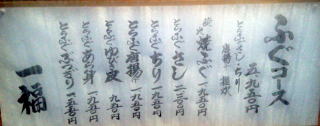 ふぐコース
五、九五〇円
とらふぐさし ちり
唐揚げ 雑炊
焼ふぐ 一、九五〇円
とらふぐさし 二、二五〇円
とらふぐちり 一、九五〇円
とらふぐ唐揚げ 一、九五〇円
とらふぐゆび皮 九五〇円
とらふぐ
とらふぐぶつぎり 一、二五〇円
一福